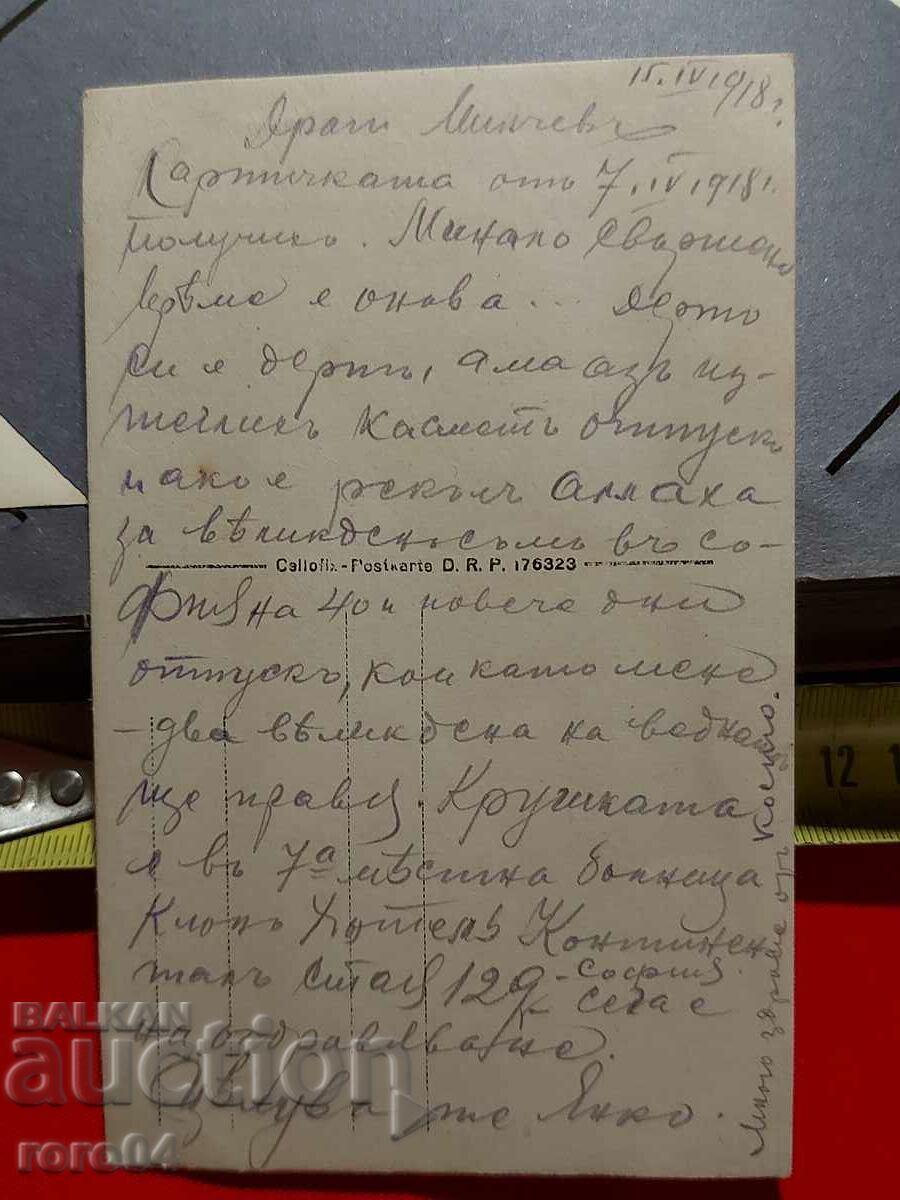 15.IV.1918 г.
Драги Минчевъ
Картичката отъ 7.IV.1918 г.
получихъ. Минало свършено
врѣме е онова... Дертъ
си е дертъ, ама азъ из-
теглихъ касметъ отпускъ
и ако е рекълъ Аллаха
за Вѣликденъ съмъ въ Со-
Cellofix-Postkarte D. R. P. 176323
фия на 40 и повече дни
отпускъ, кои като мене
- два вѣликдена на веднажъ
ще правя. Крушката
е въ 7а мѣстна болница
Клонъ Хотелъ Континен
талъ стая 129 - София
сега е
на оздравяване.
Цѣлува те Янко.
Много здраве отъ Косьло.
BALKAN
auction
roro04
12